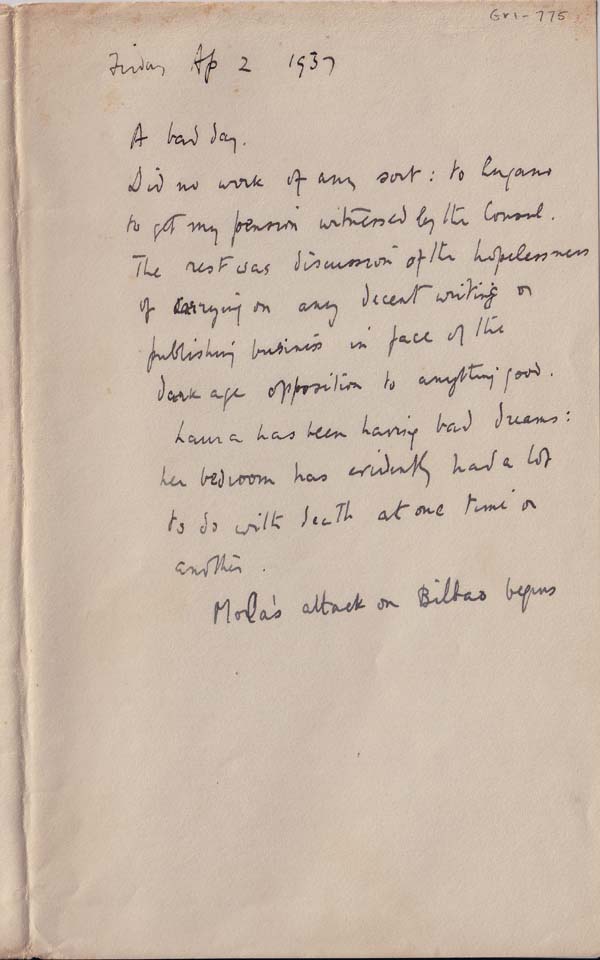 Gr1-775
Friday Ap 2 1937
A bad day.
Did no work of any sort: to Lugano
to get my pension witnessed by the Consul.
The rest was discussion of the hopelessness
of carrying on any decent writing or
publishing business in face of the
dark age opposition to anything good.
Laura has been having bad dreams:
her bedroom has evidently had a lot
to do with death at one time or
another.
Mola's attack on Bilbao begins